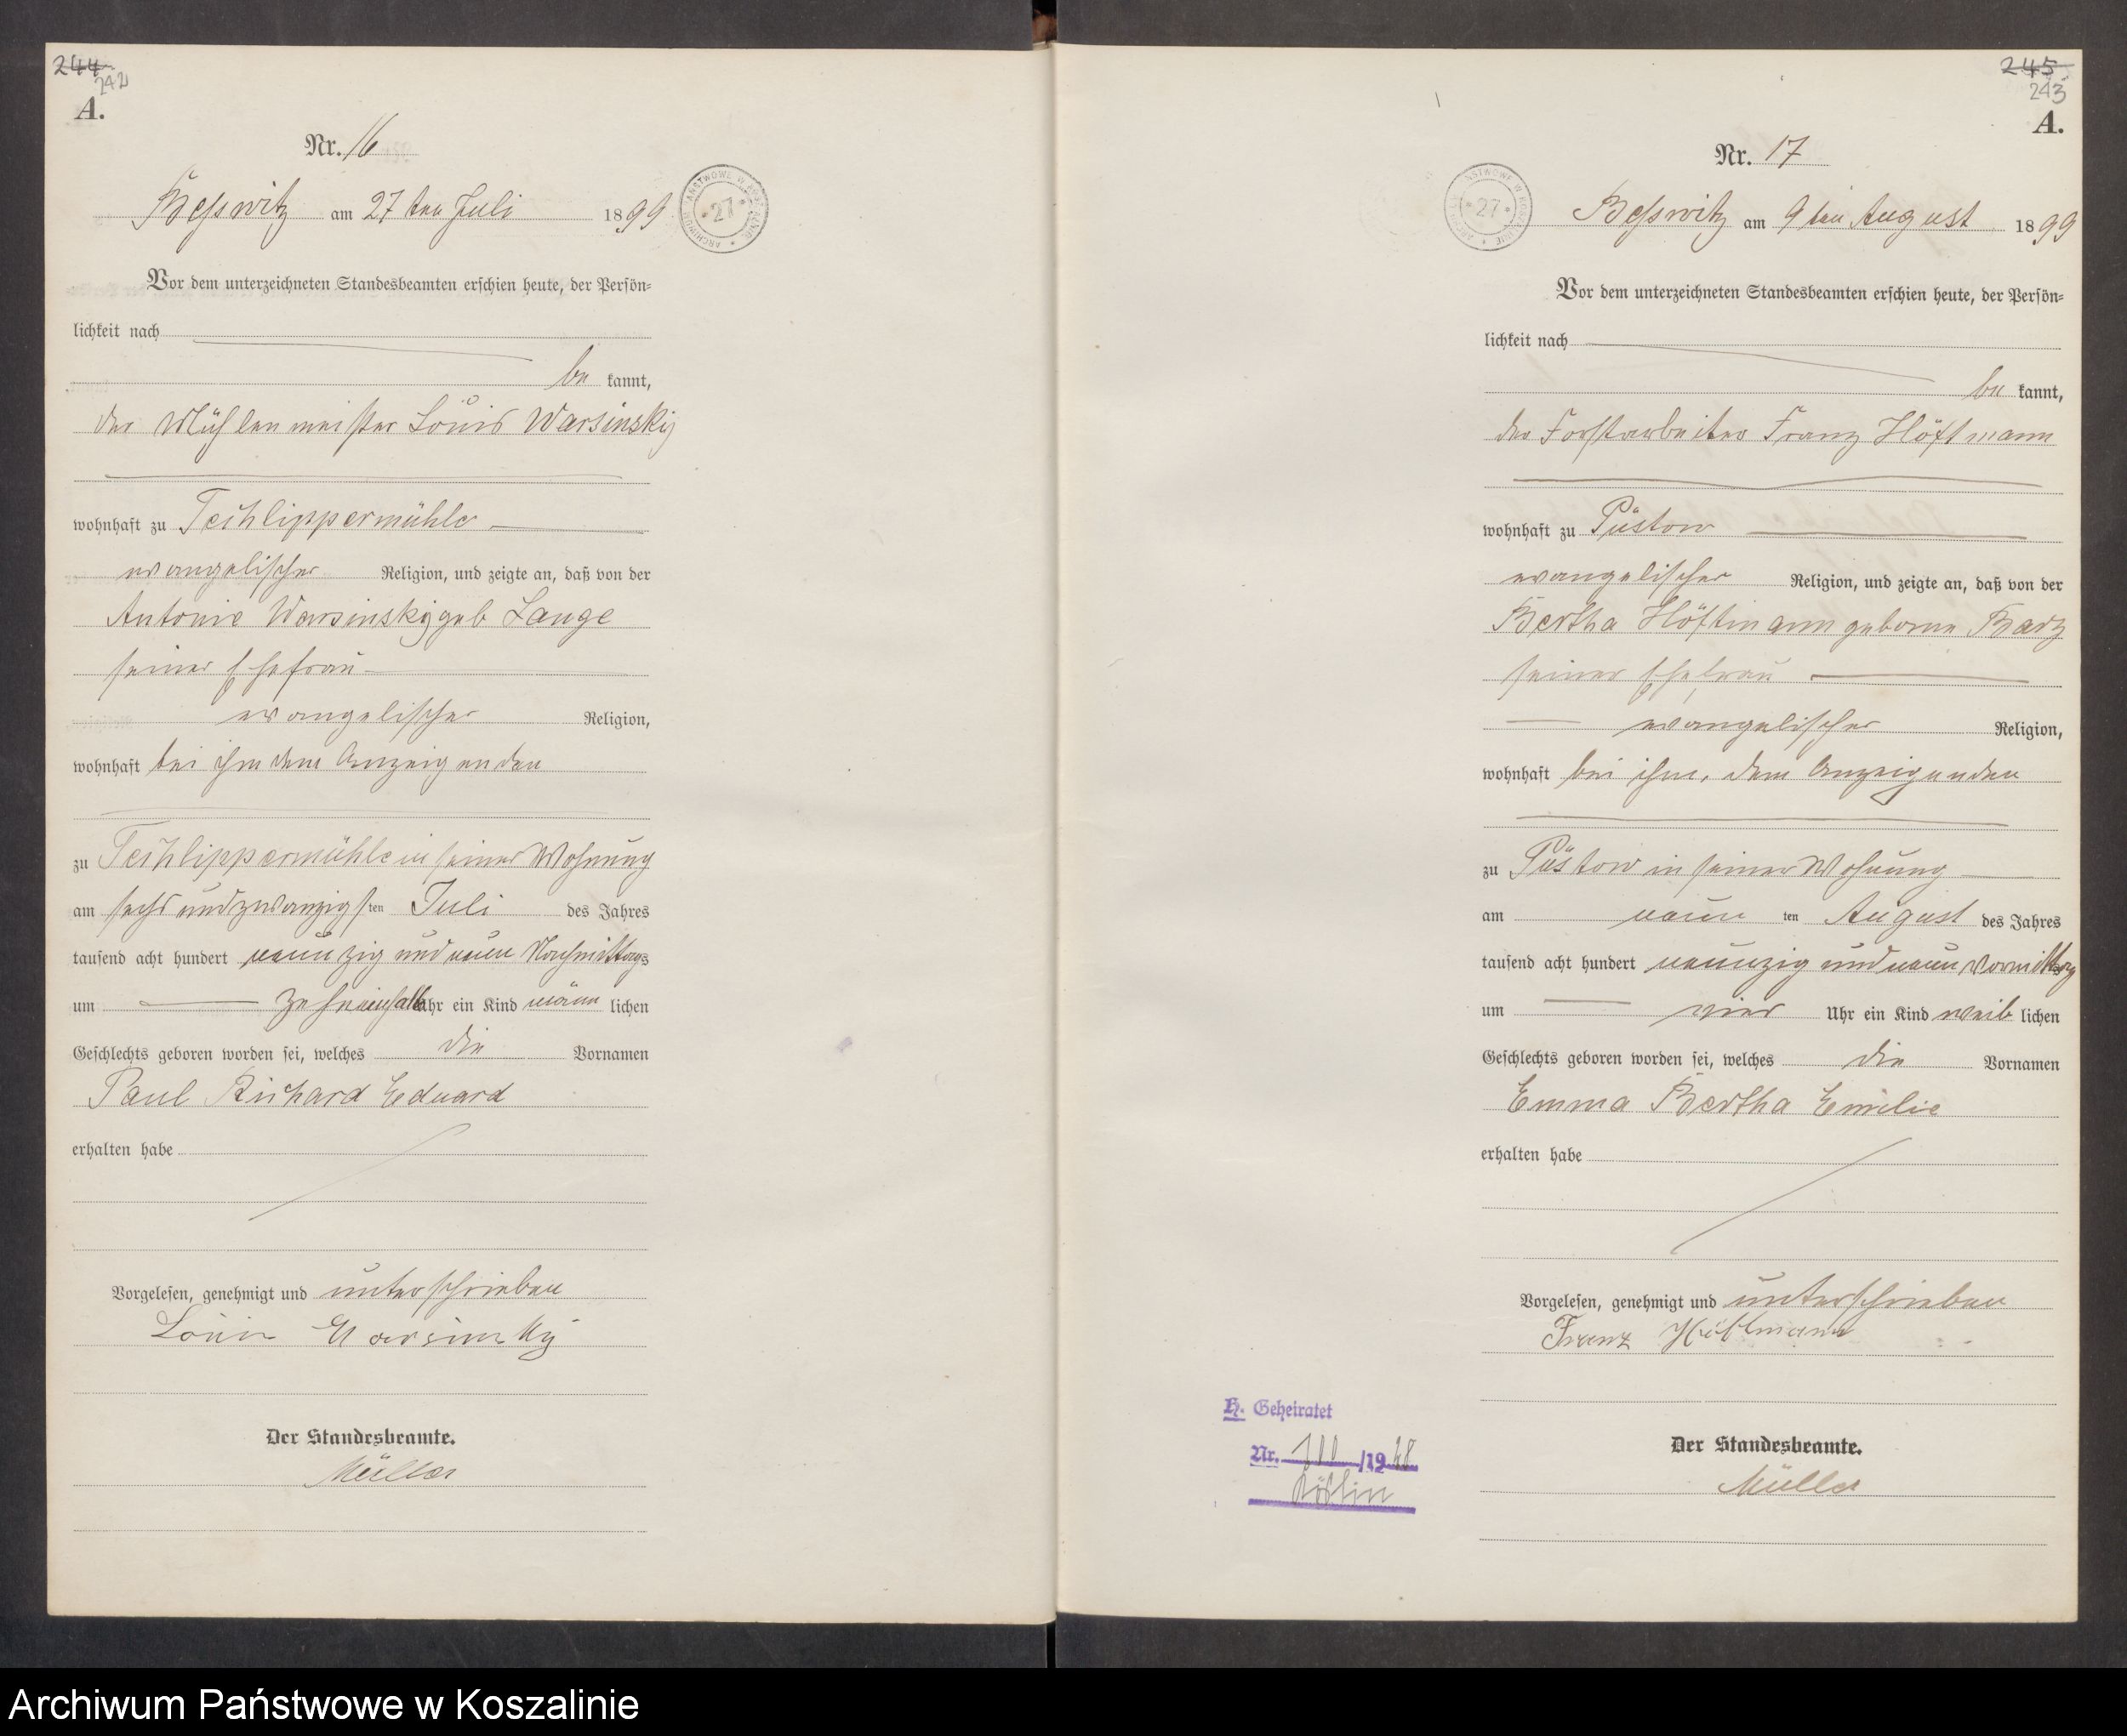 244
242
A.
Nr. 16
Beßwitz am 27ten Juli 1899
ARCHIWUM PAŃSTWOWE W KOSZALINIE
* 27 *
Vor dem unterzeichneten Standesbeamten erschien heute, der Persön=
lichkeit nach
be kannt,
der Mühlenmeister Louis Warsinsky
wohnhaft zu Techlippermühle
evangelischer Religion, und zeigte an, daß von der
Antonie Warsinsky geb Lange
seiner Ehefrau
evangelischer Religion,
wohnhaft bei ihm dem Anzeigenden
zu Techlippermühle in seiner Wohnung
am sechsundzwanzigsten Juli des Jahres
tausend acht hundert neunzig und neun Nachmittags
um zehneinhalb Uhr ein Kind männ lichen
Geschlechts geboren worden sei, welches die Vornamen
Paul Richard Eduard
erhalten habe
Vorgelesen, genehmigt und unterschrieben
Louis Warsinsky
Der Standesbeamte.
Müller
245
243
A.
Nr. 17
Beßwitz am 9ten August 1899
* 27 *
Vor dem unterzeichneten Standesbeamten erschien heute, der Persön=
lichkeit nach
be kannt,
der Forstarbeiter Franz Höftmann
wohnhaft zu Püstow
evangelischer Religion, und zeigte an, daß von der
Bertha Höftmann geborne Barz
seiner Ehefrau
evangelischer Religion,
wohnhaft bei ihm, dem Anzeigenden
zu Püstow in seiner Wohnung
am neun ten August des Jahres
tausend acht hundert neunzig und neun Vormittags
um vier Uhr ein Kind weib lichen
Geschlechts geboren worden sei, welches die Vornamen
Emma Bertha Emilie
erhalten habe
Vorgelesen, genehmigt und unterschrieben
Franz Höftmann
Der Standesbeamte.
Müller
H. Geheiratet
Nr. /19
Köslin
Archiwum Państwowe w Koszalinie